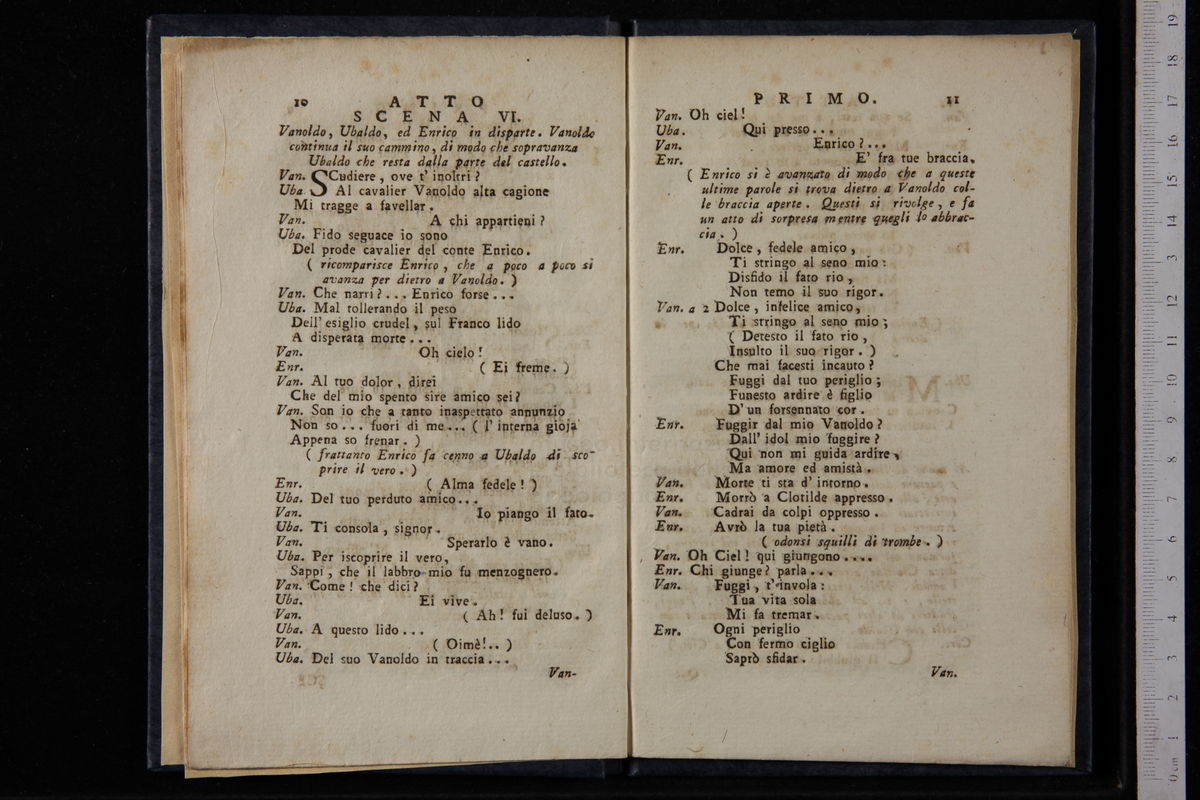 10 ATTO
SCENA VI.
Vanoldo, Ubaldo, ed Enrico in disparte. Vanoldo
continua il suo cammino, di modo che sopravanza
Ubaldo che resta dalla parte del castello.
Van. SCudiere, ove t' inoltri?
Uba. Al cavalier Vanoldo alta cagione
Mi tragge a favellar.
Van. A chi appartieni?
Uba. Fido seguace io sono
Del prode cavalier del conte Enrico.
( ricomparisce Enrico, che a poco a poco si
avanza per dietro a Vanoldo. )
Van. Che narri?... Enrico forse...
Uba. Mal tollerando il peso
Dell' esiglio crudel, sul Franco lido
A disperata morte...
Van. Oh cielo!
Enr. ( Ei freme. )
Van. Al tuo dolor, direi
Che del mio spento sire amico sei?
Van. Son io che a tanto inaspettato annunzio
Non so... fuori di me... ( l' interna gioja
Appena so frenar. )
( frattanto Enrico fa cenno a Ubaldo di sco-
prire il vero. )
Enr. ( Alma fedele! )
Uba. Del tuo perduto amico...
Van. Io piango il fato.
Uba. Ti consola, signor.
Van. Sperarlo è vano.
Uba. Per iscoprire il vero,
Sappi, che il labbro mio fu menzognero.
Van. Come! che dici?
Uba. Ei vive.
Van. ( Ah! fui deluso. )
Uba. A questo lido...
Van. ( Oimè!.. )
Uba. Del suo Vanoldo in traccia...
Van-
PRIMO. 11
Van. Oh ciel!
Uba. Qui presso...
Van. Enrico?...
Enr. E' fra tue braccia.
( Enrico si è avanzato di modo che a queste
ultime parole si trova dietro a Vanoldo col-
le braccia aperte. Questi si rivolge, e fa
un atto di sorpresa mentre quegli lo abbrac-
cia. )
Enr. Dolce, fedele amico,
Ti stringo al seno mio:
Disfido il fato rio,
Non temo il suo rigor.
Van. a 2 Dolce, infelice amico,
Ti stringo al seno mio;
( Detesto il fato rio,
Insulto il suo rigor. )
Che mai facesti incauto?
Fuggi dal tuo periglio;
Funesto ardire è figlio
D' un forsennato cor.
Enr. Fuggir dal mio Vanoldo?
Dall' idol mio fuggire?
Qui non mi guida ardire,
Ma amore ed amistà.
Van. Morte ti sta d' intorno.
Enr. Morrò a Clotilde appresso.
Van. Cadrai da colpi oppresso.
Enr. Avrò la tua pietà.
( odonsi squilli di trombe. )
Van. Oh Ciel! qui giungono....
Enr. Chi giunge? parla...
Van. Fuggi, t' invola:
Tua vita sola
Mi fa tremar.
Enr. Ogni periglio
Con fermo ciglio
Saprò sfidar.
Van.